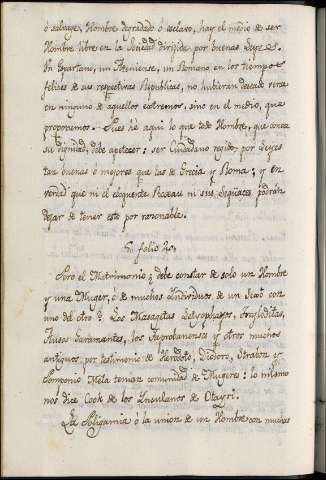 ó salvage, Hombre degradado ó esclavo, hay el medio de ser
Hombre libre en la Sociedad dirigida por buenas Leyes.
Un Spartano, un Atheniense, un Romano en los tiempos
felices de sus respectivas Republicas, no hubieran deseado verse
en ninguno de aquellos extremos, sino en el medio, que
proponemos. Pues hé aqui lo que todo Hombre, que conoce
su dignidad, debe apetecer: ser Ciudadano regido por Leyes
tan buenas ó mejores que las de Grecia y Roma; y en
verdad que ni el eloquente Roseau ni sus sequaces podrán
dejar de tener esto por razonable.
folio 20,
Pero el Matrimonio ¿ debe constar de solo un Hombre
y una Muger, ó de muchos Individuos de un Sexo con
uno del otro? Los Masagetas, Troglodítas,
Garamantes, los Taprobanenses y otros muchos
antiguos por testimonio de Herodoto, Diodoro, Strabon y
Pomponio Mela tenian comunidad de Mugeres: lo mismo
nos dice Cook de los Insulanos de Otayti.
La Poligamia ó la union de un Hombre con muchas